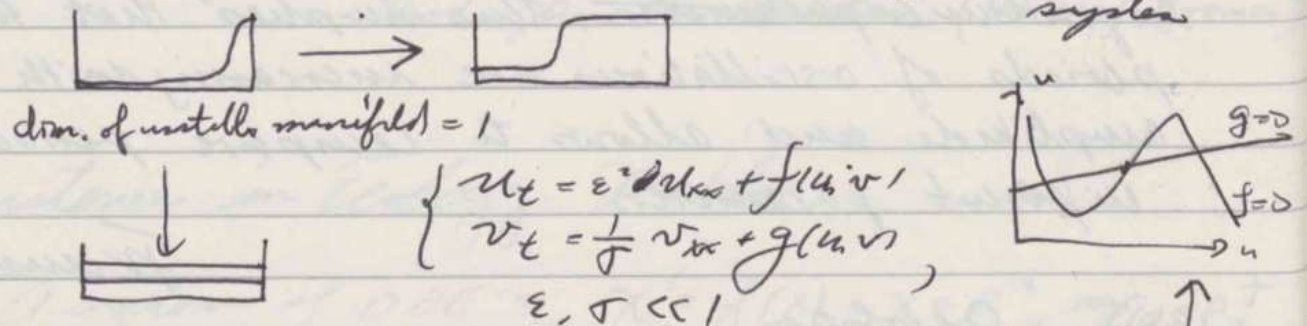 system
dim. of unstable manifold = 1
u_t = ε² u_xx + f(u, v)
v_t = 1/σ v_xx + g(u, v),
ε, σ << 1
u
g=0
f=0
u